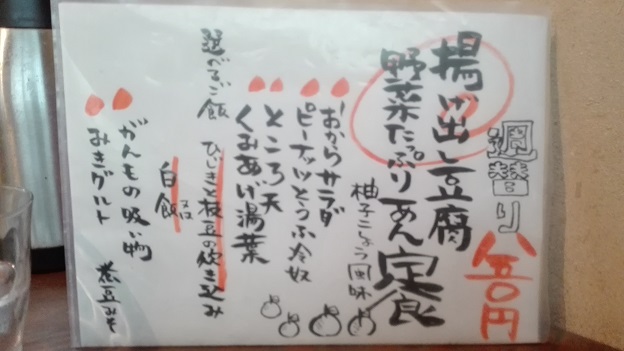 週替り
八五〇円
揚げ出し豆腐
野菜たっぷりあん定食
柚子こしょう風味
おからサラダ
ピーナッツとうふ冷奴
ところ天
くみあげ湯葉
選べるご飯
ひじきと枝豆の炊き込み
又は
白飯
がんもの吸い物
みきグルト
煮豆みそ